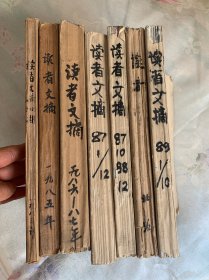 读者文摘
读者文摘
一九八五年
读者文摘
一九八六—八七年
读者文摘
87
1/12
读者文摘
87
10
88
12
读者文摘
89
1/10